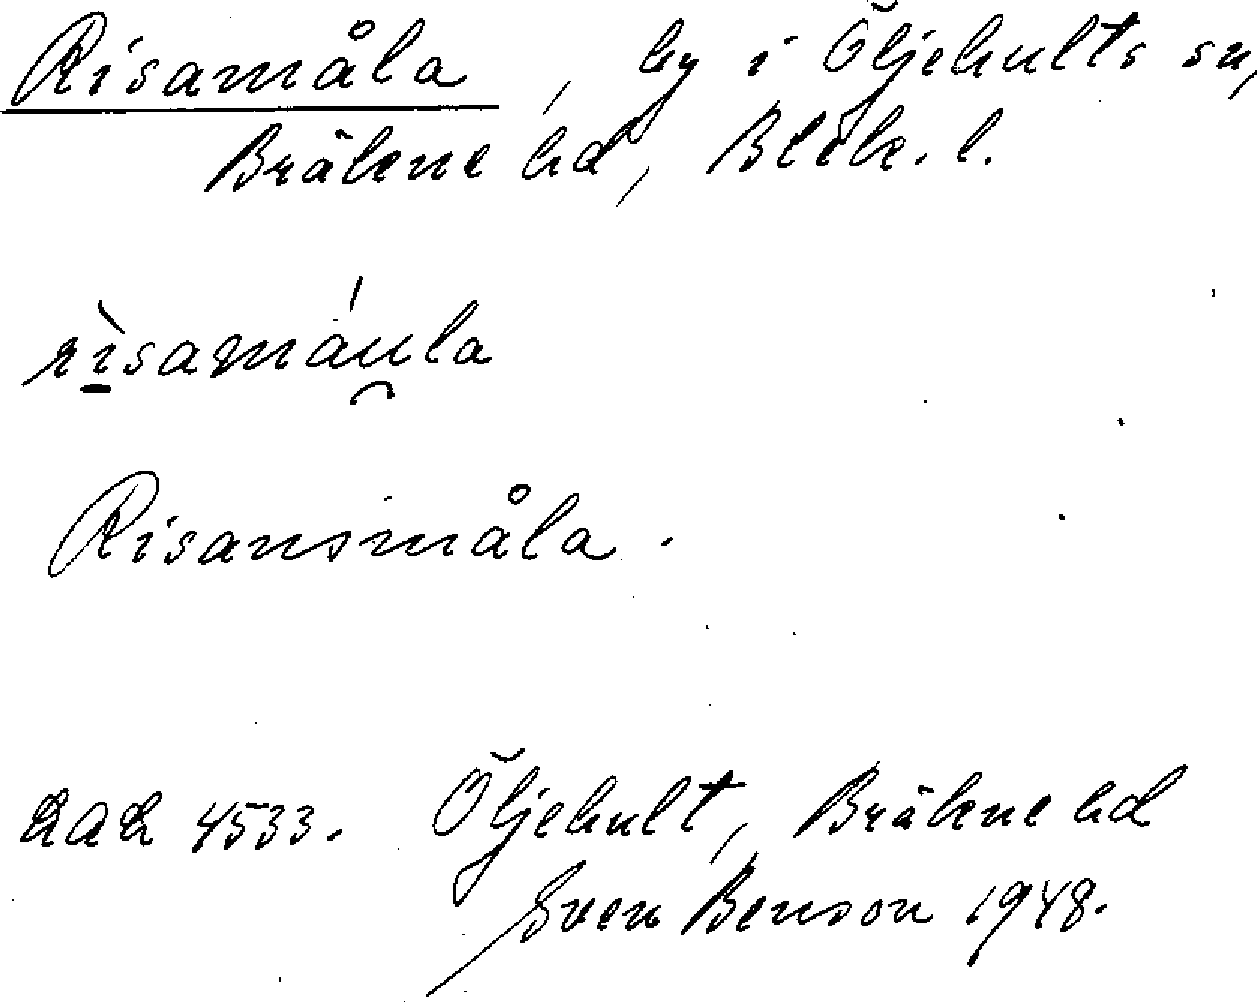 Risamåla, by i Öljehults sn,
Bräkne hd, Blek. l.
rìsamáu̯la
Risansmåla.
LAL 4533. Öljehult, Bräkne hd
Sven Benson 1948.